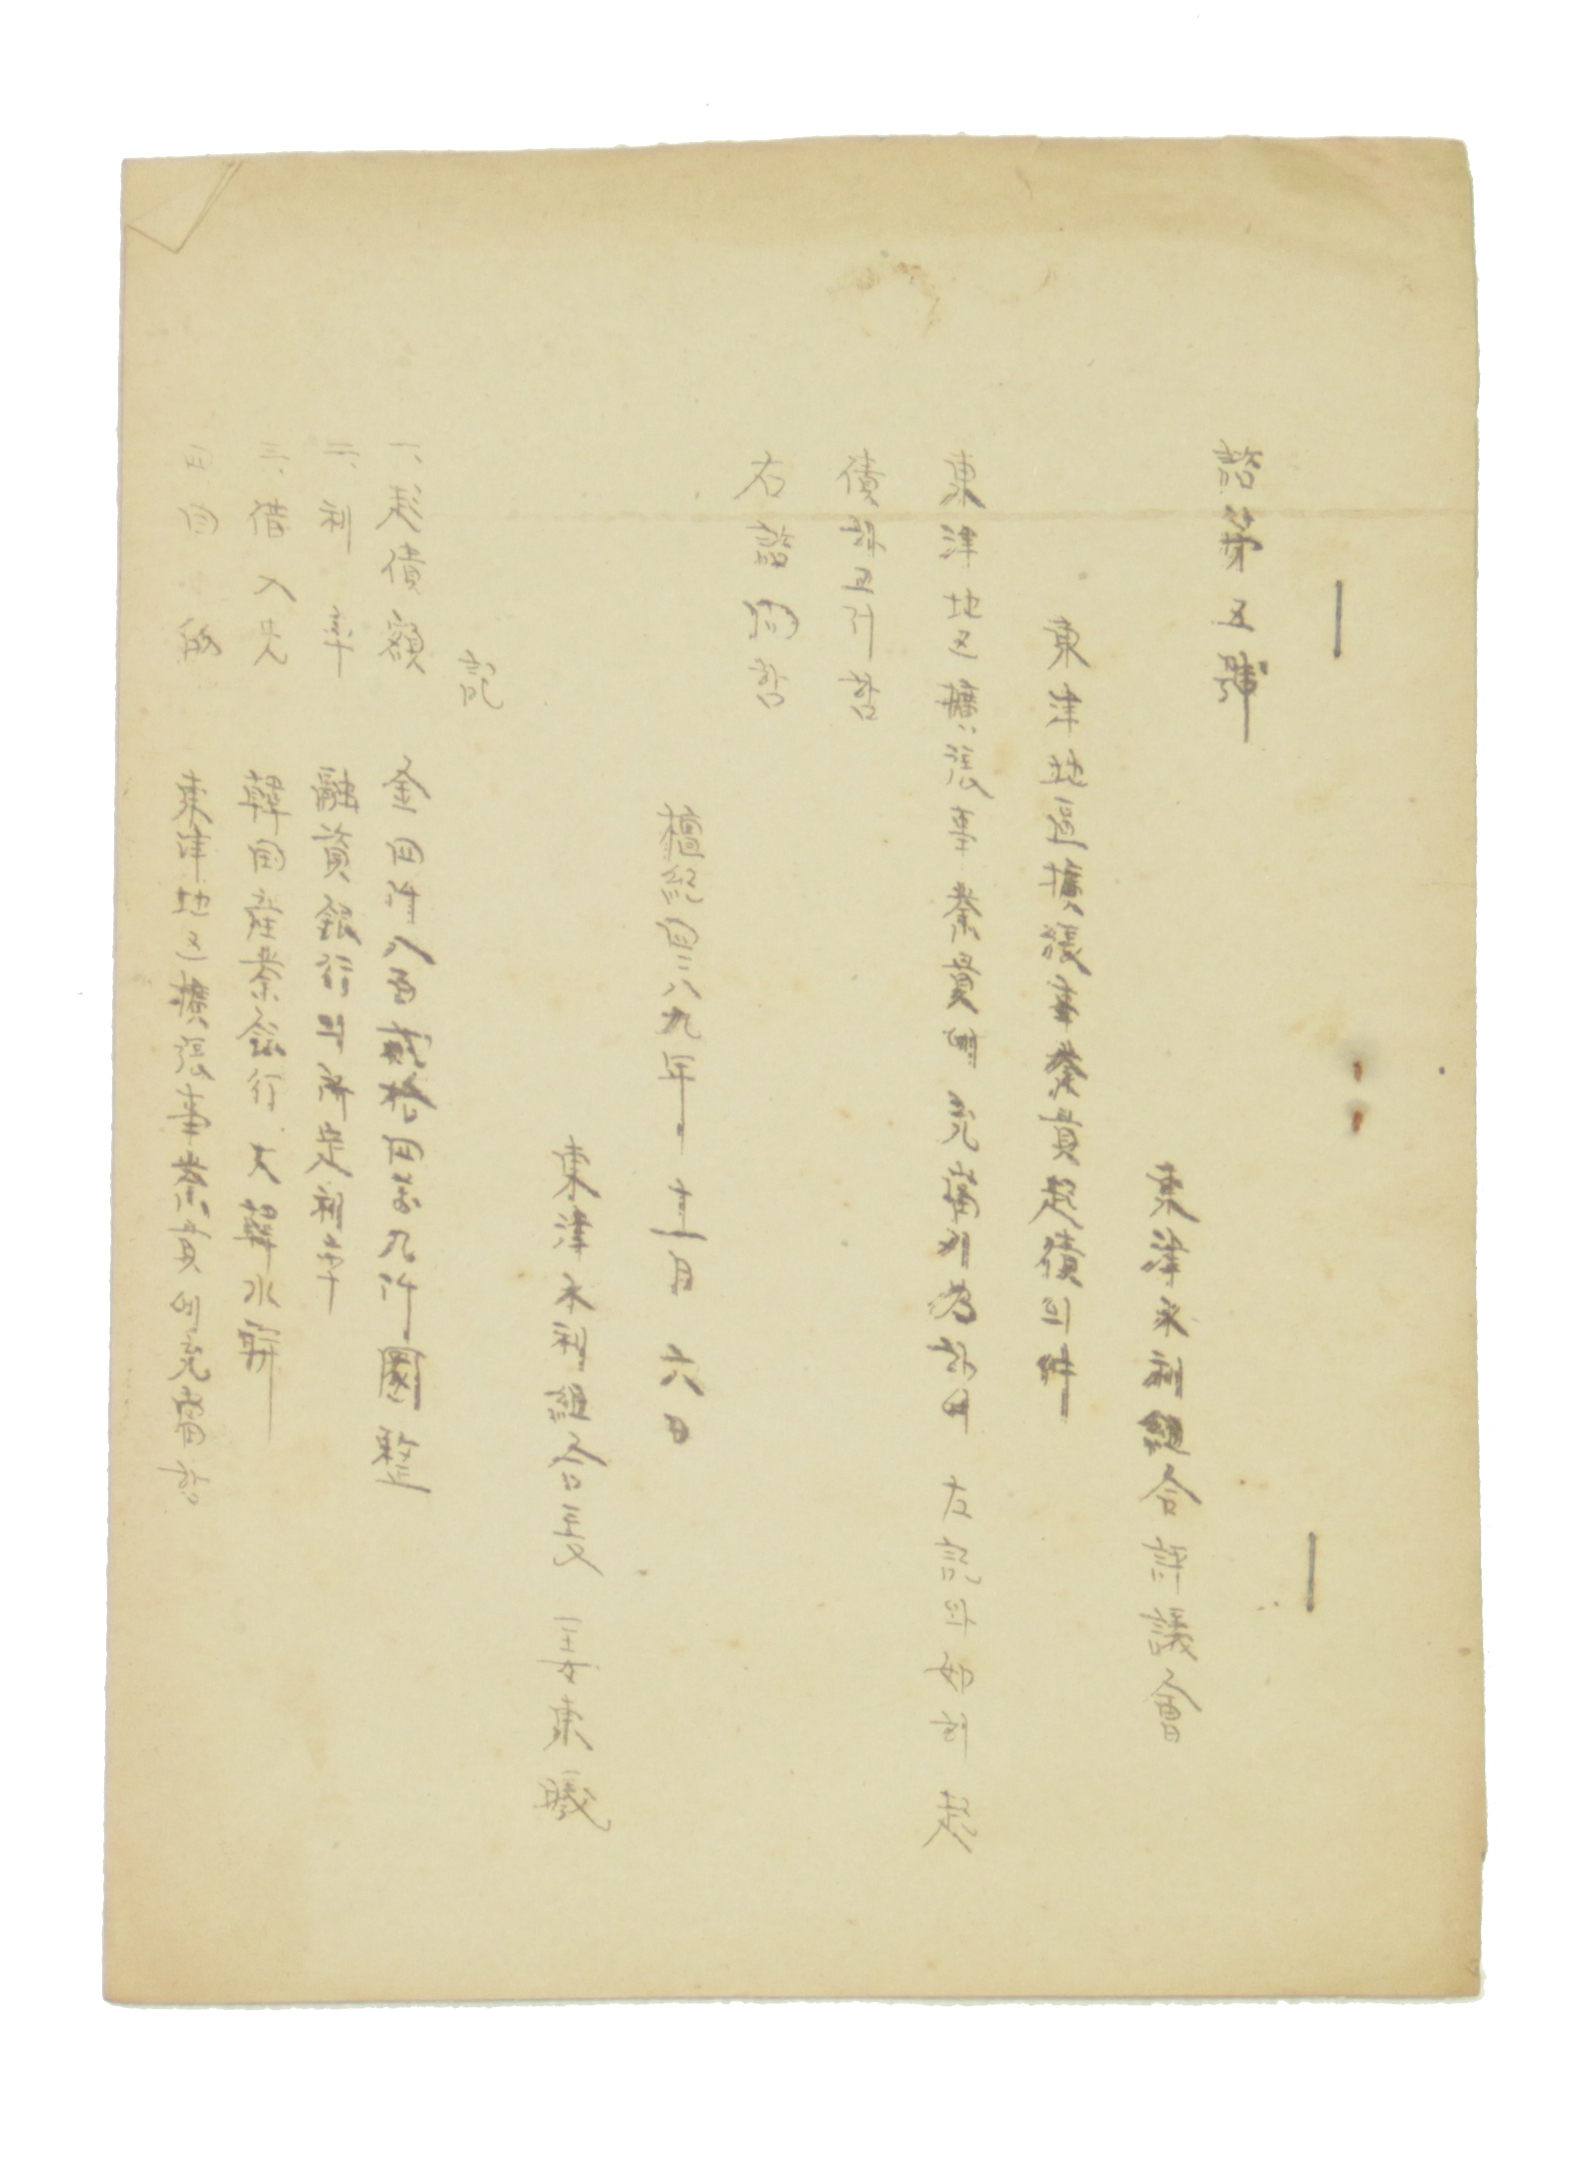 諮第五號
東津水利組合評議會
東津地區擴張事業費起債의件
東津地区擴張事業費에 充當키爲하야 左記와如히 起
債하고저함
右諮問함
檀紀四二八九年 十二月 六日
東津水利組合長 姜東曦
記
一、起債額 金四仟八百貳拾四萬九仟圜整
二、利 率 融資銀行의所定利率
三、借入先 韓国産業銀行 大韓水聯
四 東津地区擴張事業費에充當함